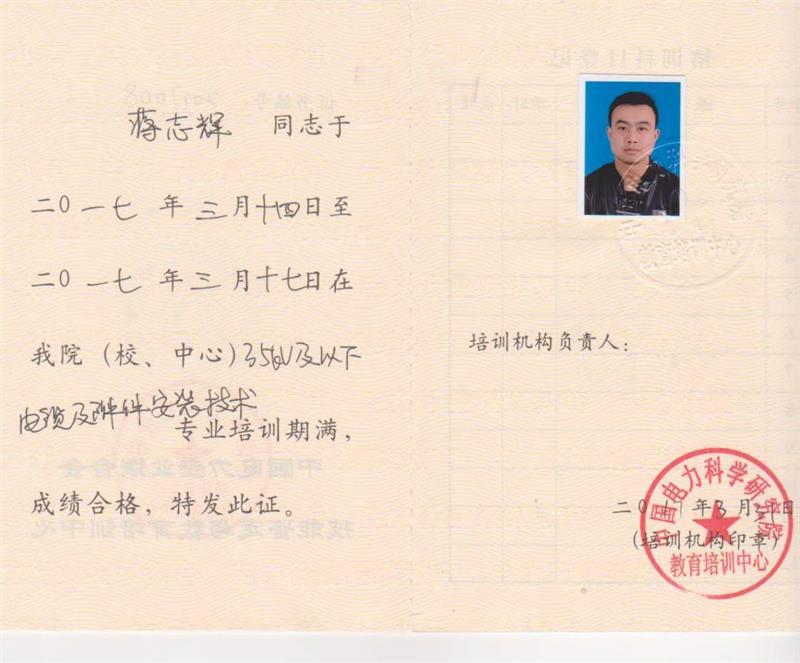 蒋志辉 同志于
二〇一七年三月十四日至
二〇一七年三月十七日在
我院（校、中心）35kV及以下
电缆及附件安装技术
专业培训期满，
成绩合格，特发此证。
教育培训中心
培训机构负责人：
二〇一七年3月31日
（培训机构印章）
中国电力科学研究院
教育培训中心